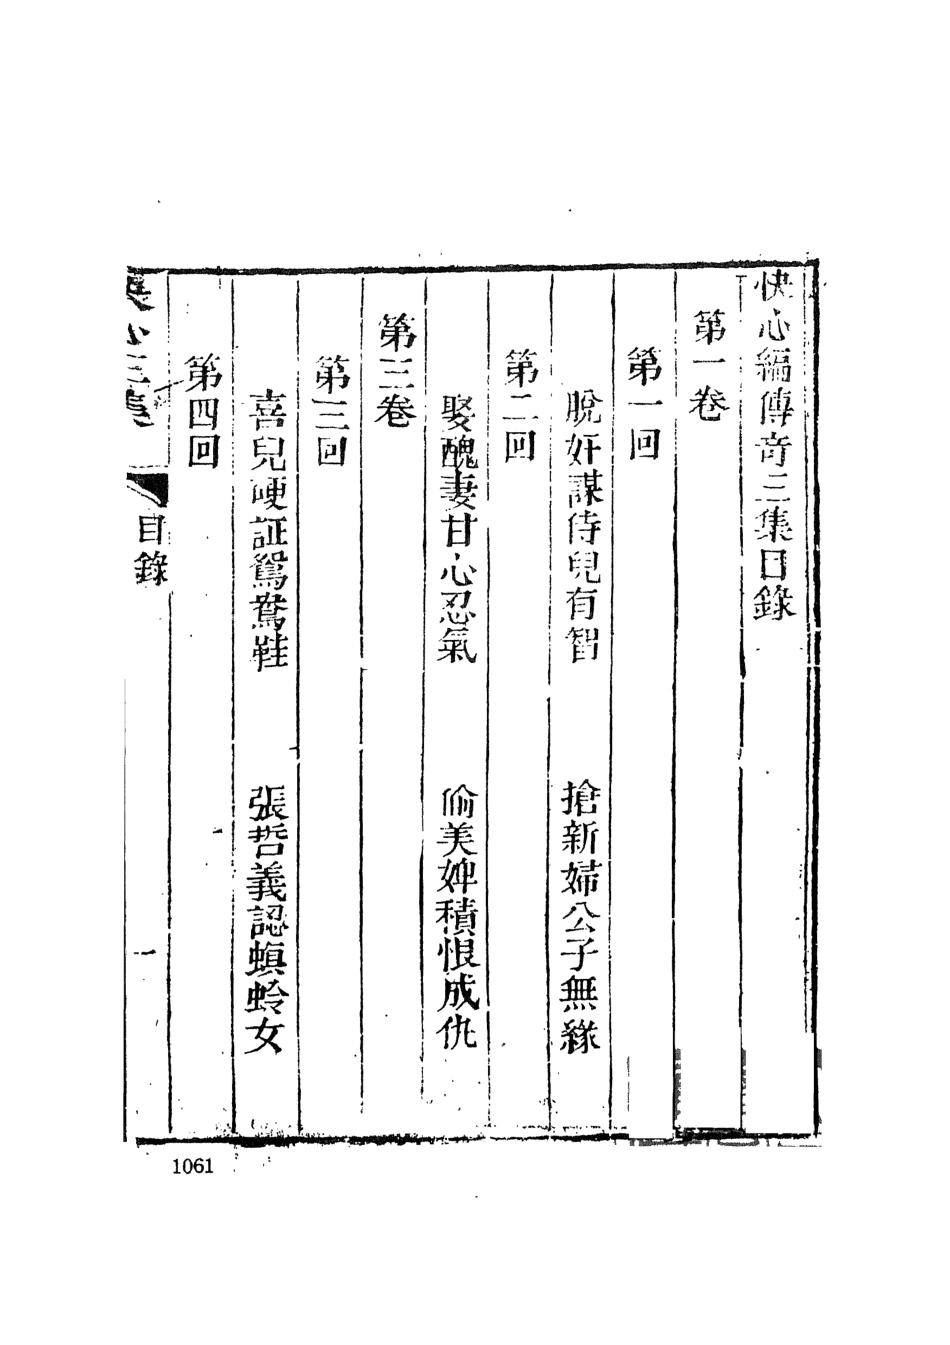 快心編傳奇三集目錄
第一卷
第一回
脫奸謀侍兒有智　搶新婦公子無緣
第二回
娶醜妻甘心忍氣　偷美婢積恨成仇
第三卷
第三回
喜兒硬証鴛鴦鞋　張哲義認螟蛉女
第四回
快心三集　目錄　一
1061